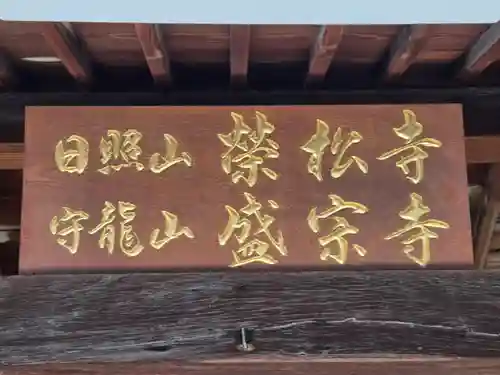 日照山 榮松寺
守龍山 盛宗寺